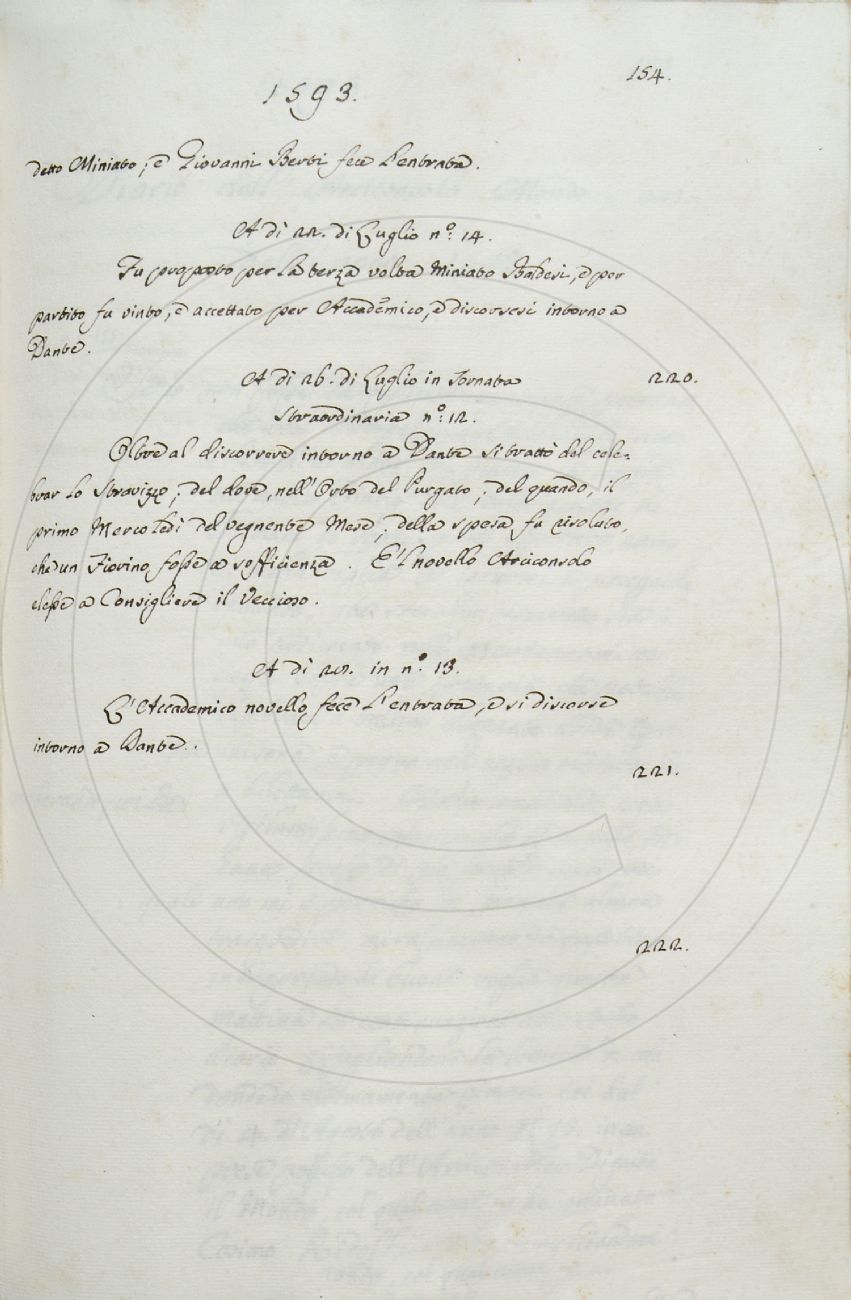 154.
1593.
detto Miniato, e Giovanni Berti fece l'entrata.
A dì 22. di Luglio n.º 14.
Fu proposto per la terza volta Miniato Baldesi, e per
partito fu vinto, e accettato per Accademico, e discorresi intorno a
Dante.
A dì 26. di Luglio in Tornata
220.
straordinaria n.º 12.
Oltre al discorrere intorno a Dante si trattò del cele-
brar lo Stravizzo, del dove, nell'Orto del Purgato, del quando, il
primo Mercoledì del vegnente Mese, della spesa fu risoluto,
che un Fiorino fosse a sofficienza. E'l novello Arciconsolo
elesse a Consigliere il
A dì in n.º 13.
L'Accademico novello fece l'entrata, e si discorse
intorno a Dante.
221.
222.